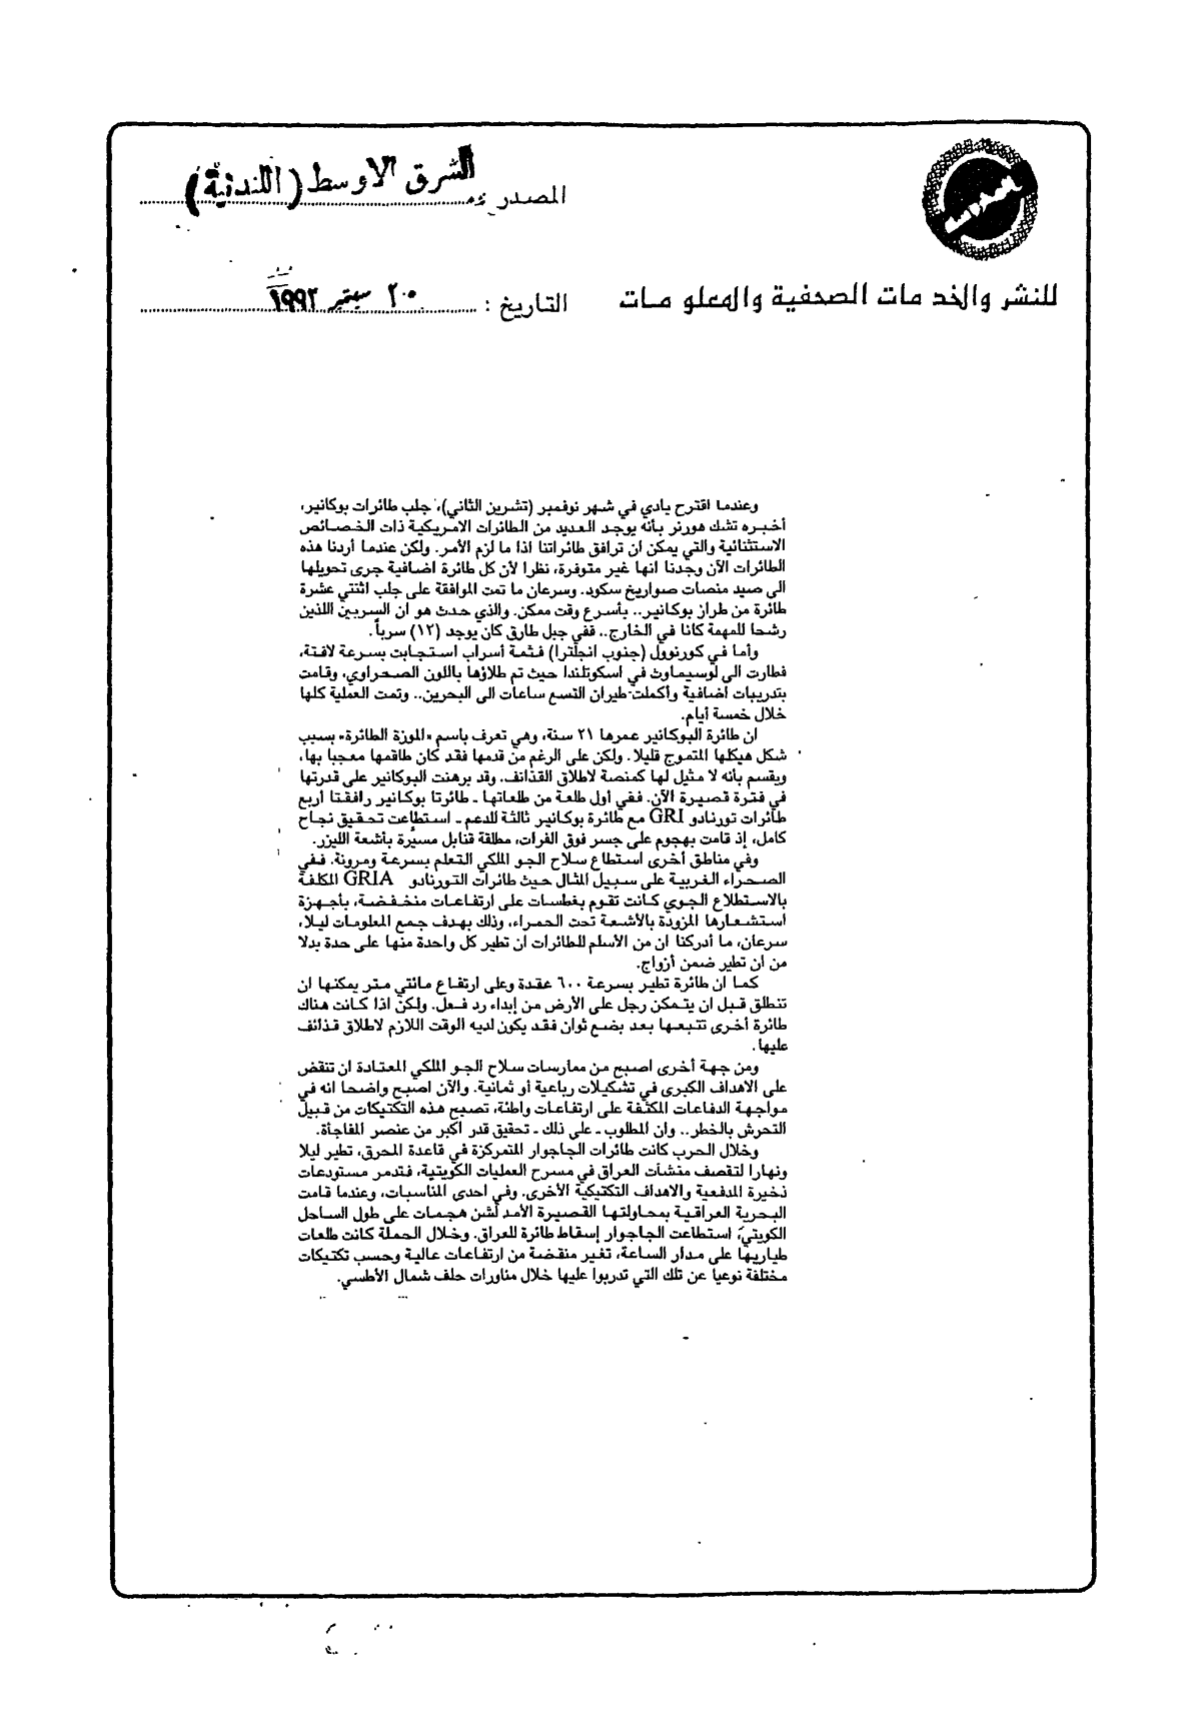 المصدر : الشرق الاوسط (اللندنية)
للنشر والخدمات الصحفية والمعلومات
التاريخ : ٢٠ سبتمبر ١٩٩٢
وعندما اقترح يادي في شهر نوفمبر (تشرين الثاني)، جلب طائرات بوكانير،
أخبره تشك هورنر بأنه يوجد العديد من الطائرات الامريكية ذات الخصائص
الاستثنائية والتي يمكن ان ترافق طائراتنا اذا ما لزم الأمر. ولكن عندما أردنا هذه
الطائرات الآن وجدنا انها غير متوفرة، نظرا لأن كل طائرة اضافية جرى تحويلها
الى صيد منصات صواريخ سكود. وسرعان ما تمت الموافقة على جلب اثنتي عشرة
طائرة من طراز بوكانير.. بأسرع وقت ممكن. والذي حدث هو ان السربين اللذين
رشحا للمهمة كانا في الخارج.. ففي جبل طارق كان يوجد (١٢) سرباً.
وأما في كورنوول (جنوب انجلترا) فثمة أسراب استجابت بسرعة لافتة،
فطارت الى لوسيماوث في اسكوتلندا حيث تم طلاؤها باللون الصحراوي، وقامت
بتدريبات اضافية وأكملت طيران التسع ساعات الى البحرين.. وتمت العملية كلها
خلال خمسة أيام.
ان طائرة البوكانير عمرها ٢١ سنة، وهي تعرف باسم «الموزة الطائرة» بسبب
شكل هيكلها المتموج قليلا. ولكن على الرغم من قدمها فقد كان طاقمها معجبا بها،
ويقسم بأنه لا مثيل لها كمنصة لاطلاق القذائف. وقد برهنت البوكانير على قدرتها
في فترة قصيرة الآن. ففي أول طلعة من طلعاتها ـ طائرتا بوكانير رافقتا أربع
طائرات تورنادو GRI مع طائرة بوكانير ثالثة للدعم ـ استطاعت تحقيق نجاح
كامل، إذ قامت بهجوم على جسر فوق الفرات، مطلقة قنابل مسيّرة بأشعة الليزر.
وفي مناطق أخرى استطاع سلاح الجو الملكي التعلم بسرعة ومرونة. ففي
الصحراء الغربية على سبيل المثال حيث طائرات التورنادو GRIA المكلفة
بالاستطلاع الجوي كانت تقوم بغطسات على ارتفاعات منخفضة، بأجهزة
استشعارها المزودة بالأشعة تحت الحمراء، وذلك بهدف جمع المعلومات ليلا،
سرعان، ما أدركنا ان من الأسلم للطائرات ان تطير كل واحدة منها على حدة بدلا
من ان تطير ضمن أزواج.
كما ان طائرة تطير بسرعة ٦٠٠ عقدة وعلى ارتفاع مائتي متر يمكنها ان
تنطلق قبل ان يتمكن رجل على الأرض من إبداء رد فعل. ولكن اذا كانت هناك
طائرة أخرى تتبعها بعد بضع ثوان فقد يكون لديه الوقت اللازم لاطلاق قذائف
عليها.
ومن جهة أخرى اصبح من ممارسات سلاح الجو الملكي المعتادة ان تنقض
على الاهداف الكبرى في تشكيلات رباعية أو ثمانية. والآن اصبح واضحا انه في
مواجهة الدفاعات المكثفة على ارتفاعات واطئة، تصبح هذه التكتيكات من قبيل
التحرش بالخطر.. وان المطلوب ـ على ذلك ـ تحقيق قدر اكبر من عنصر المفاجأة.
وخلال الحرب كانت طائرات الجاجوار المتمركزة في قاعدة المحرق، تطير ليلا
ونهارا لتقصف منشآت العراق في مسرح العمليات الكويتية، فتدمر مستودعات
ذخيرة المدفعية والاهداف التكتيكية الأخرى. وفي احدى المناسبات، وعندما قامت
البحرية العراقية بمحاولتها القصيرة الأمد لشن هجمات على طول الساحل
الكويتي، استطاعت الجاجوار إسقاط طائرة للعراق. وخلال الحملة كانت طلعات
طياريها على مدار الساعة، تغير منقضة من ارتفاعات عالية وحسب تكتيكات
مختلفة نوعيا عن تلك التي تدربوا عليها خلال مناورات حلف شمال الأطسي.